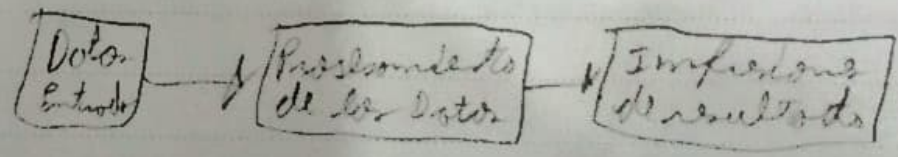 Datos
Entrada
Procesamiento
de los Datos
Impresiones
de resultado